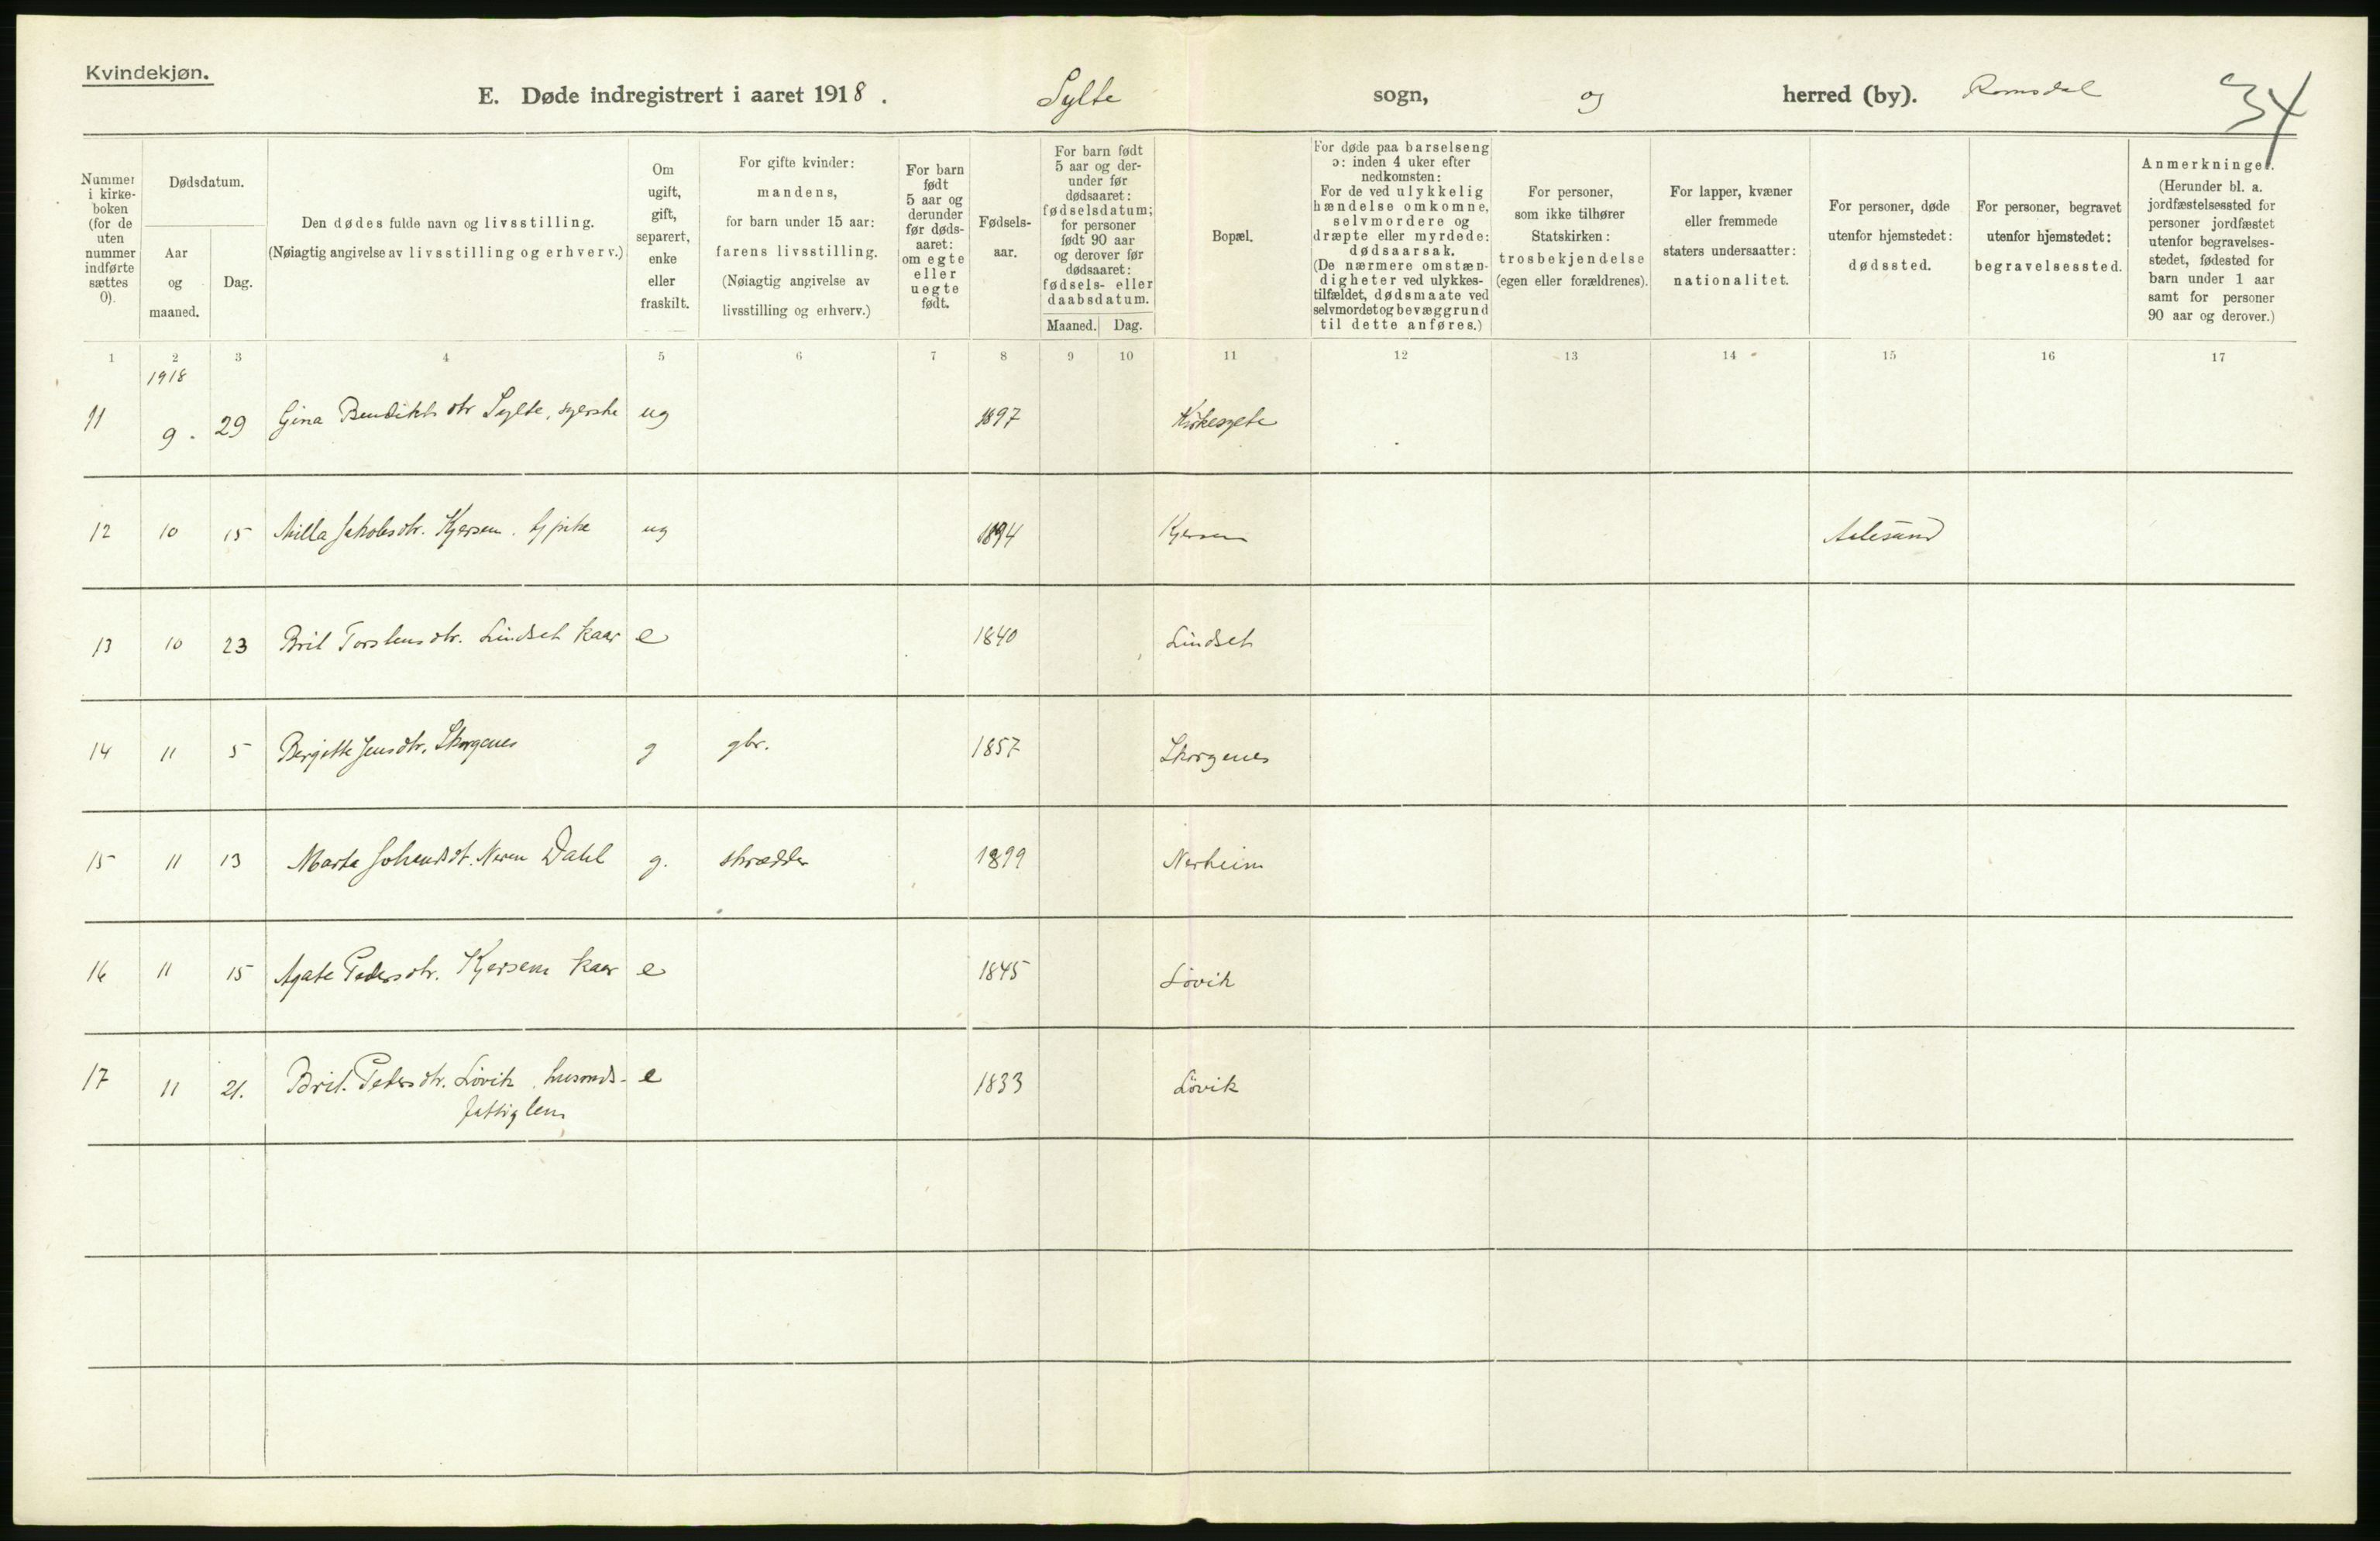 Kvindekjøn.
E. Døde indregistrert i aaret 1918. Sylte sogn, og herred (by). Romsdal 34
Nummer i kirke-boken (for de uten nummer indførte sættes 0).
Dødsdatum.
Aar og maaned.
Dag.
Den dødes fulde navn og livsstilling.
(Nøiagtig angivelse av livsstilling og erhverv.)
Om ugift, gift, separert, enke eller fraskilt.
For gifte kvinder: mandens, for barn under 15 aar: farens livsstilling. (Nøiagtig angivelse av livsstilling og erhverv.)
For barn født 5 aar og derunder før døds-aaret: om egte eller uegte født.
Fødsels-aar.
For barn født 5 aar og der-under før dødsaaret: fødselsdatum; for personer født 90 aar og derover før dødsaaret: fødsels- eller daabsdatum.
Maaned. Dag.
Bopæl.
For døde paa barselseng ɔ: inden 4 uker efter nedkomsten: For de ved ulykkelig hændelse omkomne, selvmordere og dræpte eller myrdede: dødsaarsak. (De nærmere omstæn-digheter ved ulykkes-tilfældet, dødsmaate ved selvmordet og bevæggrund til dette anføres.)
For personer, som ikke tilhører Statskirken: trosbekjendelse (egen eller forældrenes).
For lapper, kvæner eller fremmede staters undersaatter: nationalitet.
For personer, døde utenfor hjemstedet: dødssted.
For personer, begravet utenfor hjemstedet: begravelsessted.
Anmerkninger. (Herunder bl. a. jordfæstelsessted for personer jordfæstet utenfor begravelses-stedet, fødested for barn under 1 aar samt for personer 90 aar og derover.)
1 2 3 4 5 6 7 8 9 10 11 12 13 14 15 16 17
1918
11 9. 29 Gina Bendiktsdtr Sylte, syerske ug 1897 Kirkesylte
12 10 15 Milla Jakobsdtr. Kjersem. tj pike ug 1894 Kjersem Aalesund
13 10 23 Brit Torstensdtr. Lindset kaar e 1840 Lindset
14 11 5 Bergitte Jensdtr. Skorgenes g gbr. 1857 Skorgenes
15 11 13 Marta Dahl g. skrædder 1899 Nerheim
16 11 15 Agate Pedersdtr. Kjersem kaar e 1845 Løvik
17 11 21. Brit. Pedersdtr. Løvik, husmds- e 1833 Løvik
fattiglem